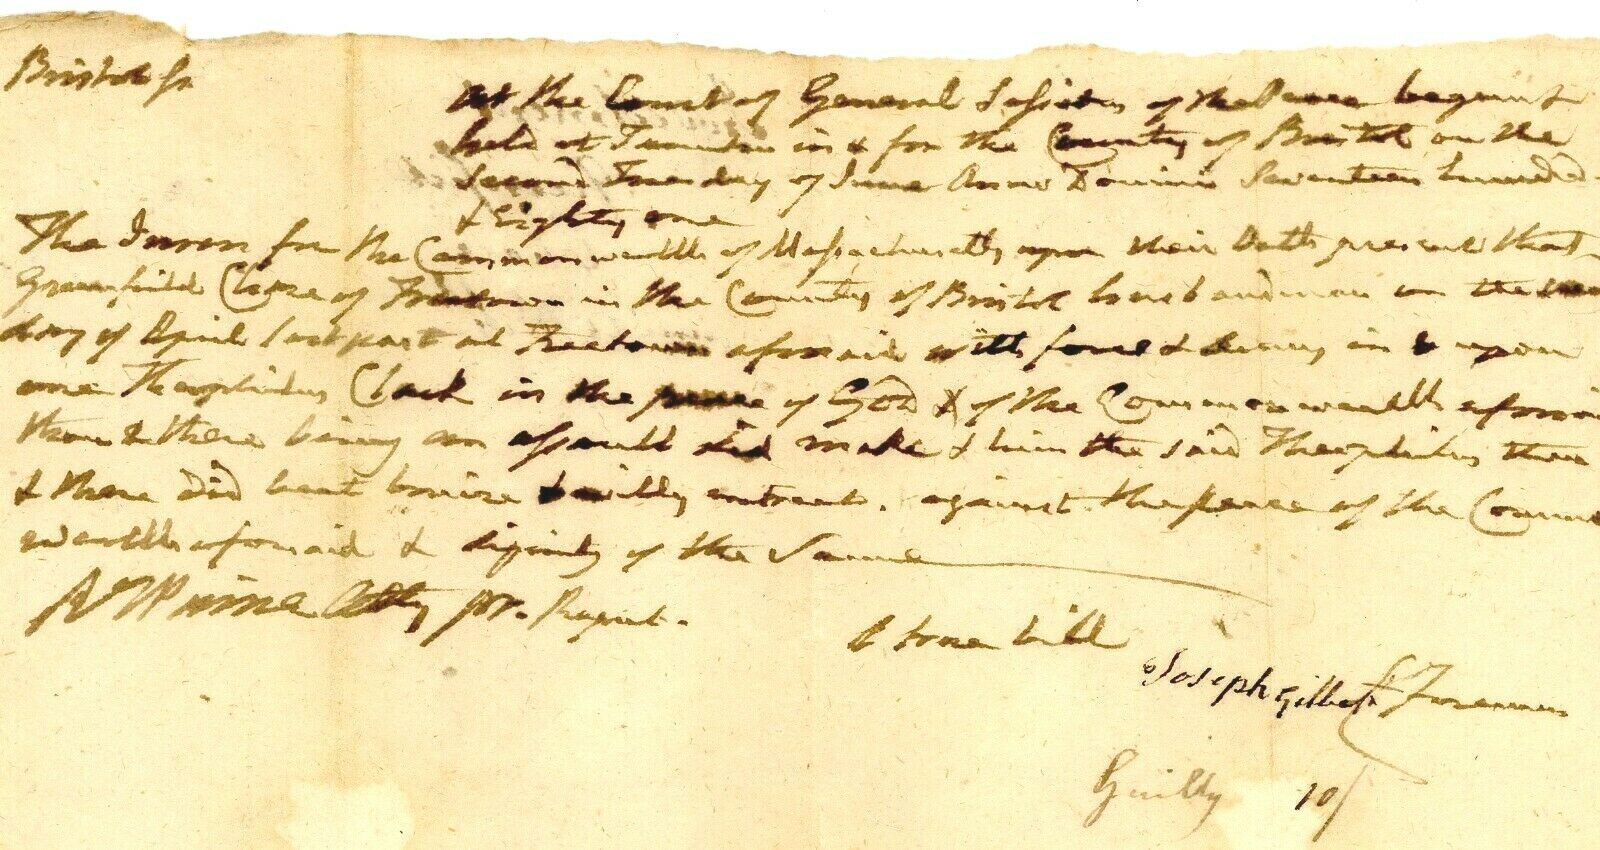 Bristol ss
At the Court of General Sessions of the Peace begun &
held at Taunton in & for the County of Bristol on the
Second Tuesday of June Anno Domini Seventeen hundred
& Eighty one
The Jurors for the Commonwealth of Massachusetts upon their Oath present that
Greenfield Chase of Freetown in the County of Bristol husbandman on the
day of April last past at Freetown aforesaid with force & arms in & upon
one Theophilus Clark in the peace of God & of the Commonwealth aforesaid
then & there being an assault did make & him the said Theophilus then
& there did beat bruise & evilly entreat. against the peace of the Common
wealth aforesaid & dignity of the Same
Atty pr.
A true bill
Joseph Gilbert Foreman
Guilty 10/